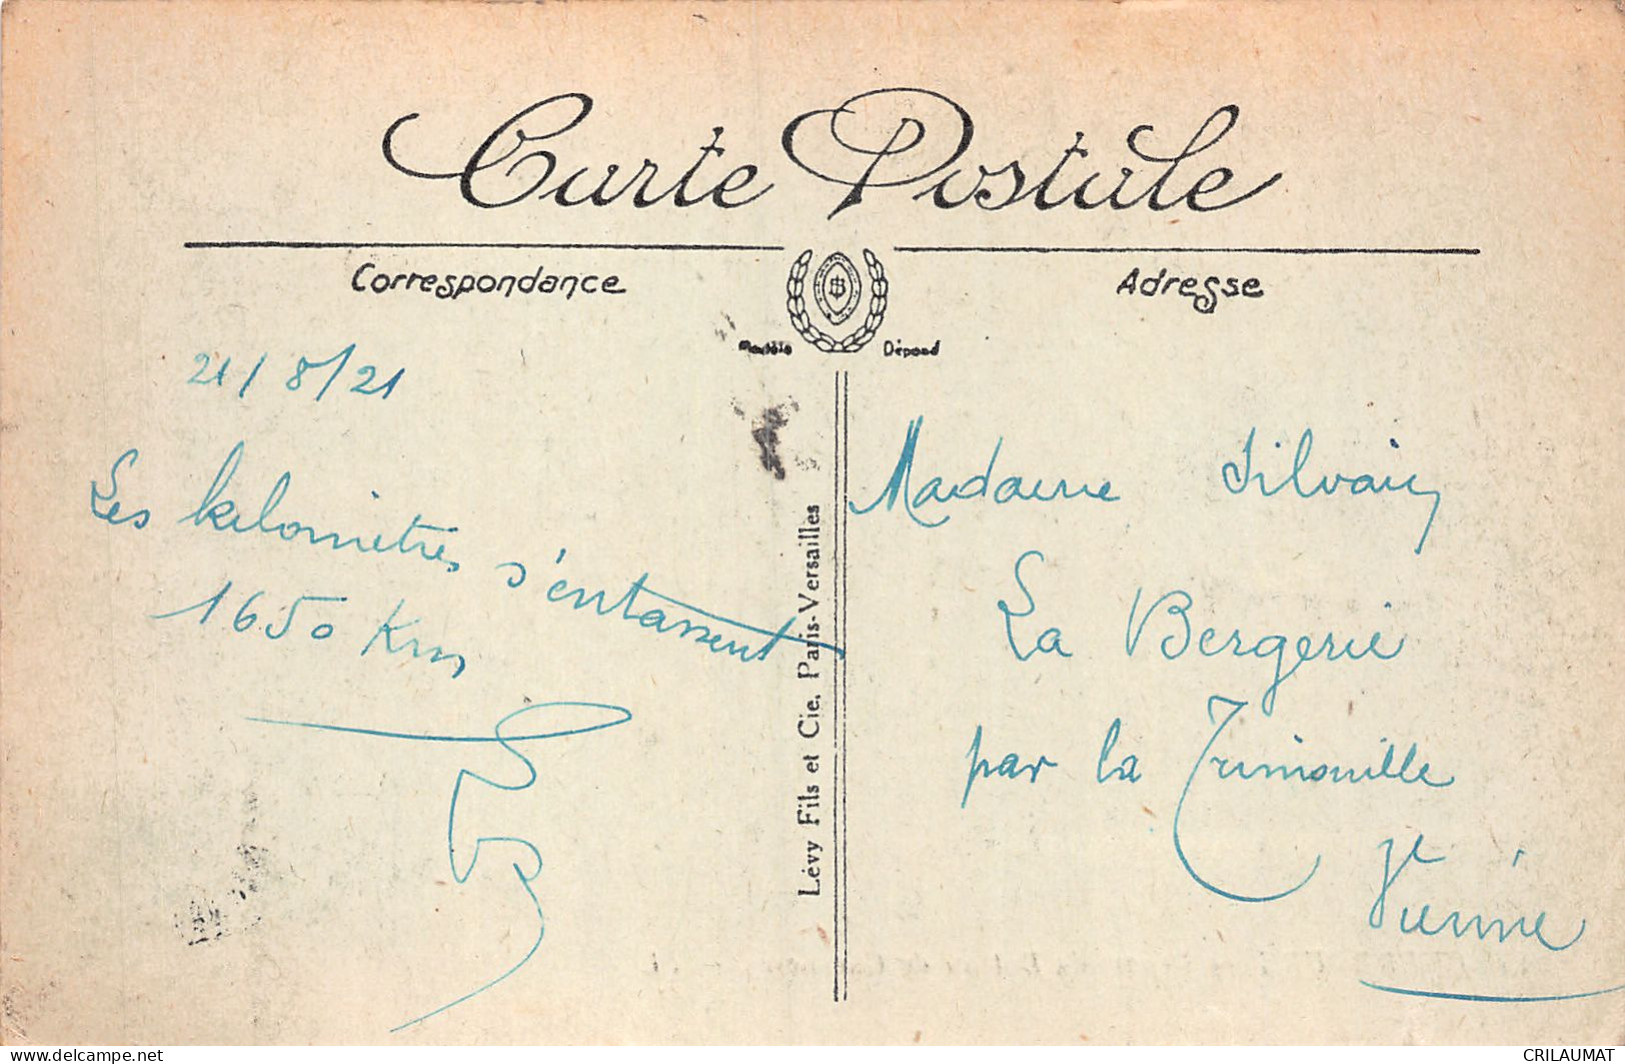 Carte Postale
Correspondance
Adresse
Modèle Déposé
21/8/21
Les kilomètres s'entassent
1650 Km
Madame Silvain
La Bergerie
par la Trimouille
Vienne
Lévy Fils et Cie. Paris-Versailles
delcampe.net
CRILAUMAT